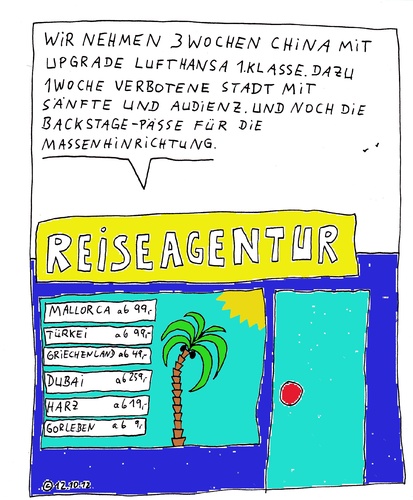 WIR NEHMEN 3 WOCHEN CHINA MIT
UPGRADE LUFTHANSA 1.KLASSE. DAZU
1 WOCHE VERBOTENE STADT MIT
SÄNFTE UND AUDIENZ. UND NOCH DIE
BACKSTAGE-PÄSSE FÜR DIE
MASSENHINRICHTUNG.
REISEAGENTUR
MALLORCA ab 99,-
TÜRKEI ab 99,-
GRIECHENLAND ab 49,-
DUBAI ab 259,-
HARZ ab 19,-
GORLEBEN ab 9,-
12.10.12